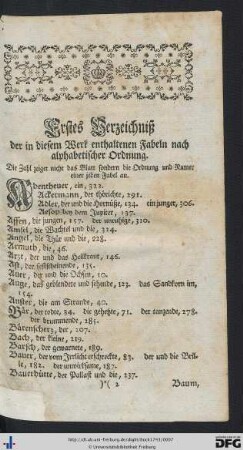 Erstes Verzeichniß
der in diesem Werk enthaltenen Fabeln nach
alphabetischer Ordnung.
Die Zahl zeiget nicht das Blatt sondern die Ordnung und Numer
einer jeden Fabel an.
Abentheuer, ein, 322.
Ackermann, der thörichte, 291.
Adler, der und die Hornüße, 134. ein junger, 306.
Aesop bey dem Jupiter, 137.
Affen, die jungen, 157. der
Amsel, die Wachtel und die, 314.
Angel, die Thür und die, 228.
Armuth, die, 46.
Arzt, der und das Heilkraut, 146.
Ast, der selbstscheinende, 135.
Auer, der und die Ochsen, 10.
Auge, das geblendete und sehende, 123. das Sandkorn im,
154.
Auster, die am Strande, 40.
Bär, der todte, 34. der gehetzte, 71. der tanzende, 278.
der brummende, 285.
Bärenscherz, der, 107.
Bach, der kleine, 219.
Barsch, der gewarnete, 189.
Bauer, der vom Irrlicht erschreckte, 83. der und die Wel-
le, 182. der unwirthsame, 187.
Bauerhütte, der Pallast und die, 237.
)*( 2 Baum,